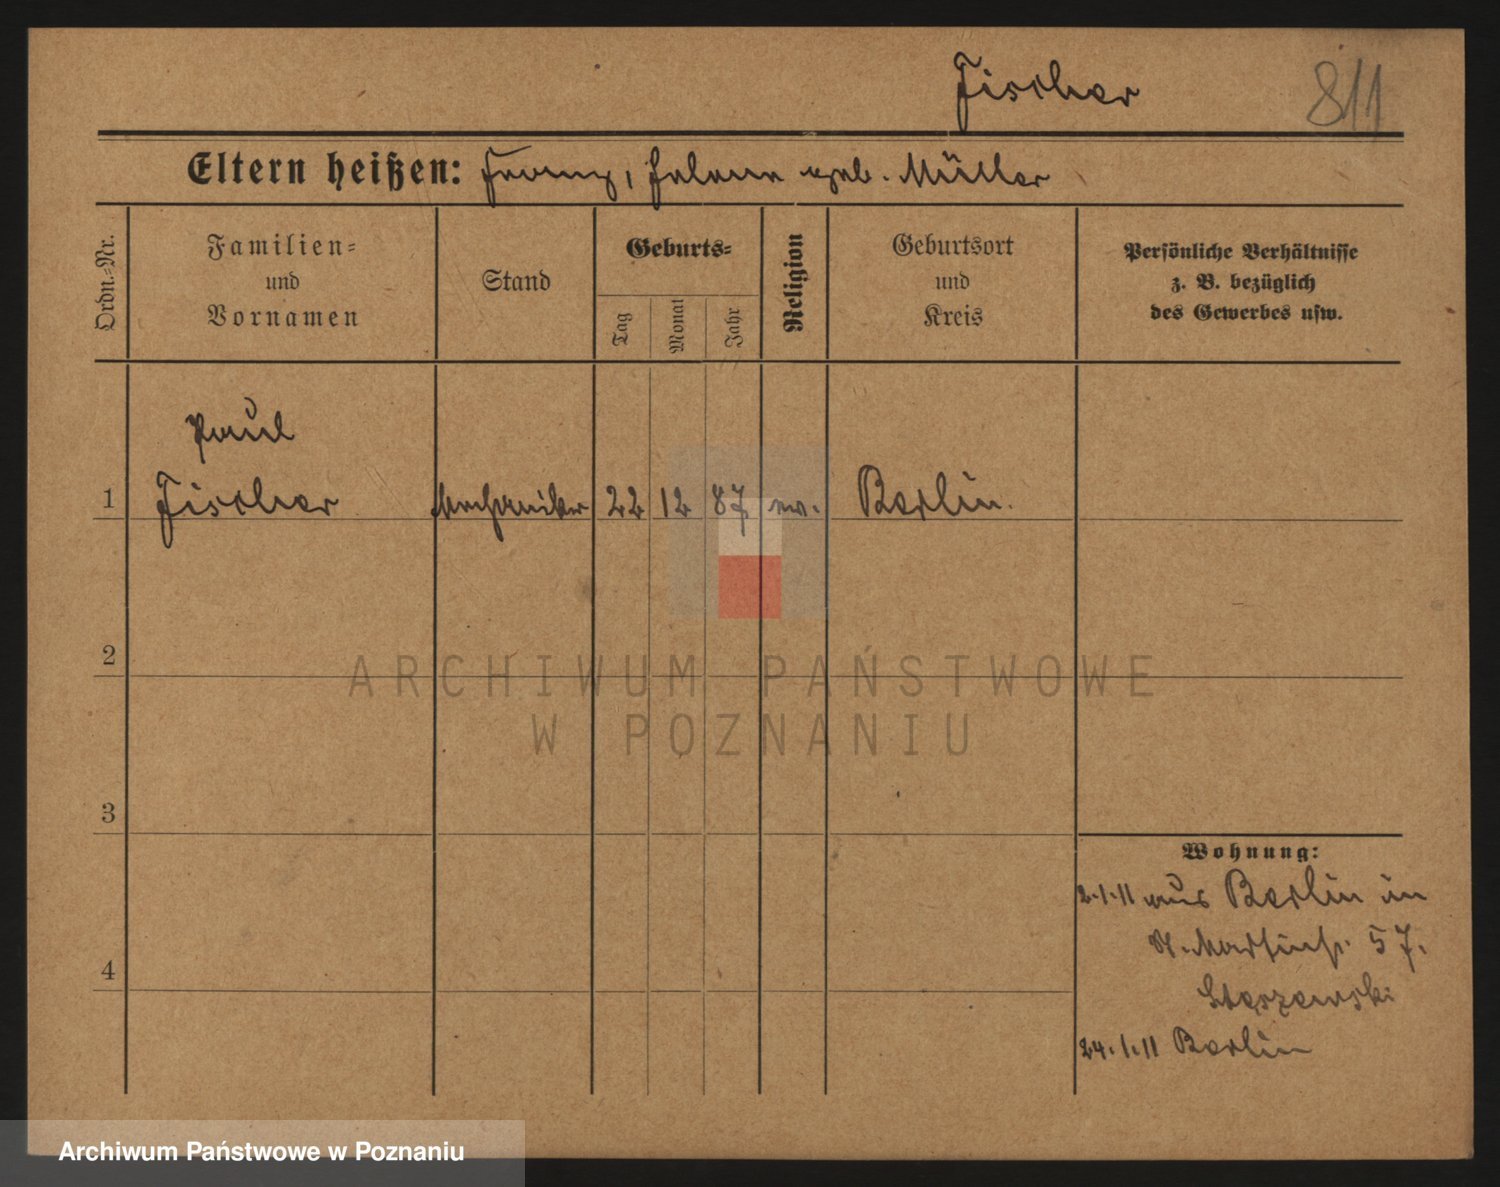 Fischer 811
Eltern heißen: Franz, Helene geb. Müller
Ordn.=Nr.
Familien=
und
Vornamen
Stand
Geburts=
Tag
Monat
Jahr
Religion
Geburtsort
und
Kreis
Persönliche Verhältnisse
z. B. bezüglich
des Gewerbes usw.
Paul
1 Fischer Mechaniker 22 12 87 ev. Berlin.
2
ARCHIWUM PAŃSTWOWE
W POZNANIU
3
Wohnung:
2.1.11 aus Berlin in
St. Martinstr. 57.
4
Staszewski
24.1.11 Berlin
Archiwum Państwowe w Poznaniu